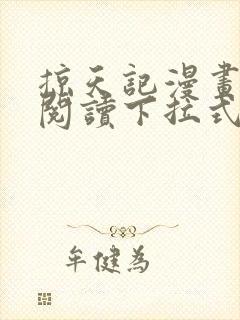 掠天記漫畫
閱讀下拉式
牟健為